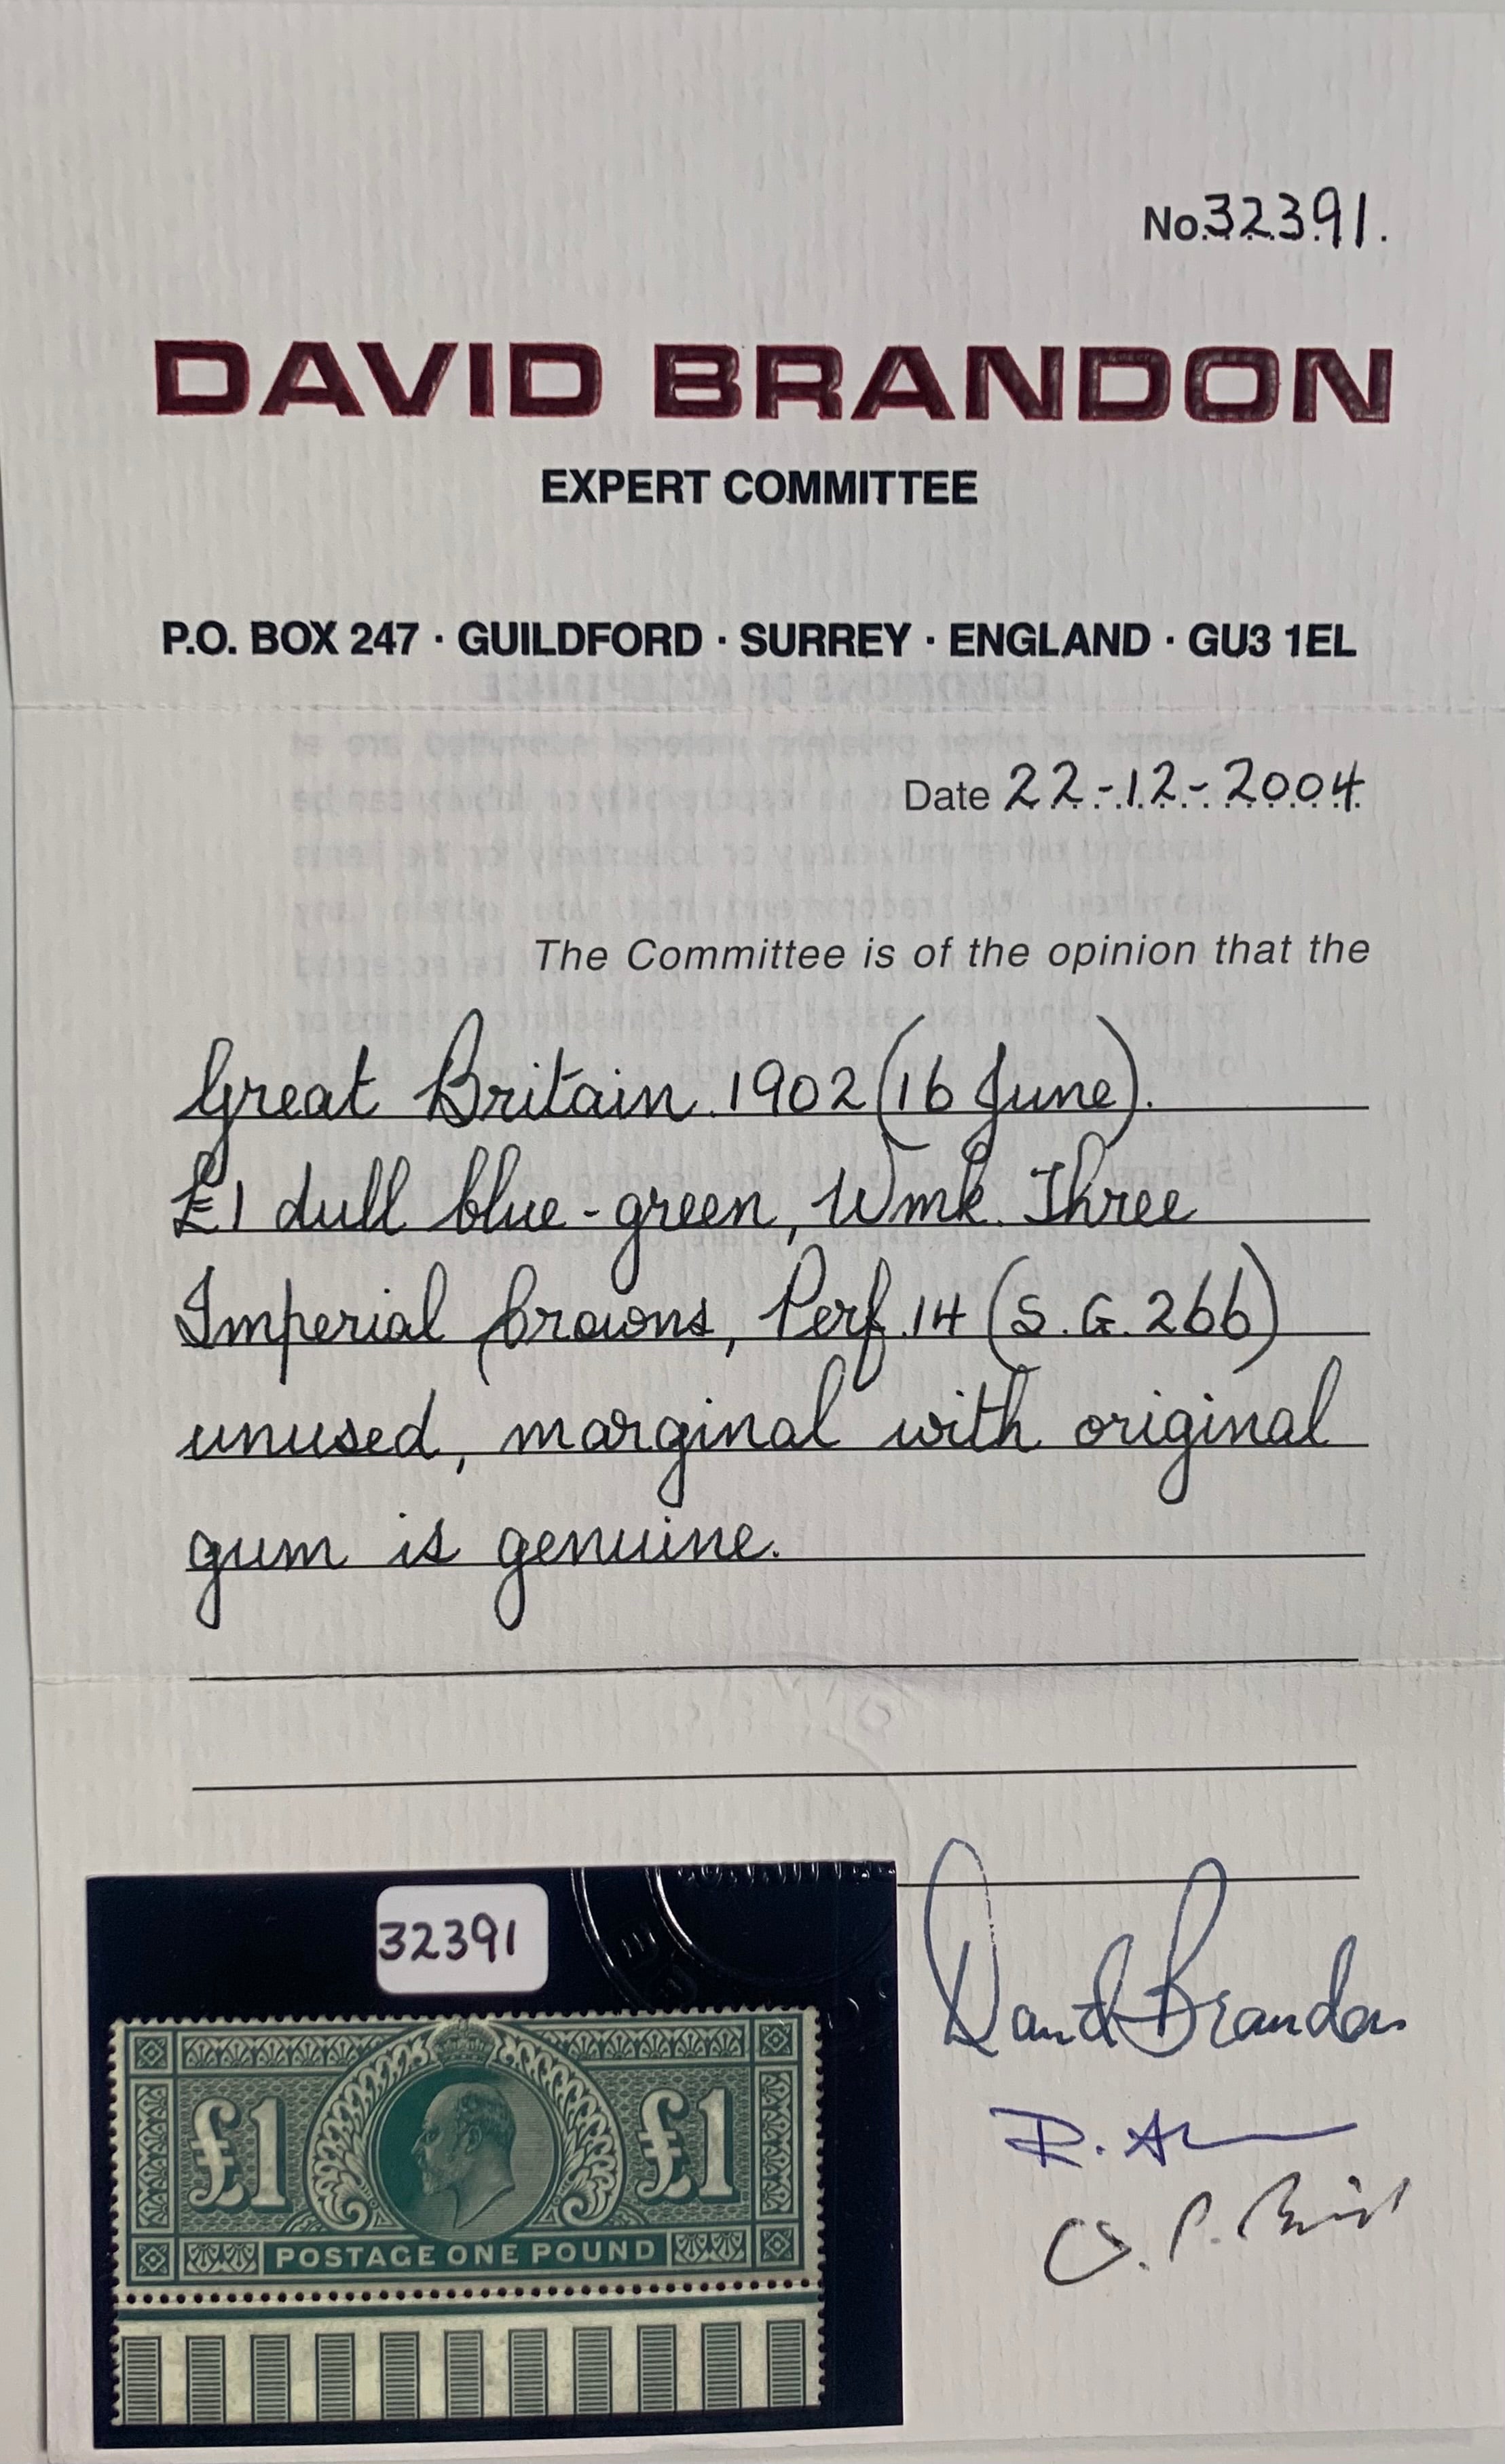 No. 32391.
DAVID BRANDON
EXPERT COMMITTEE
P.O. BOX 247 · GUILDFORD · SURREY · ENGLAND · GU3 1EL
Date 22-12-2004
The Committee is of the opinion that the
Great Britain. 1902 (16 June).
£1 dull blue-green, Wmk. Three
Imperial Crowns, Perf. 14 (S.G. 266)
unused, marginal with original
gum is genuine.
32391
£1 £1
POSTAGE ONE POUND
David Brandon